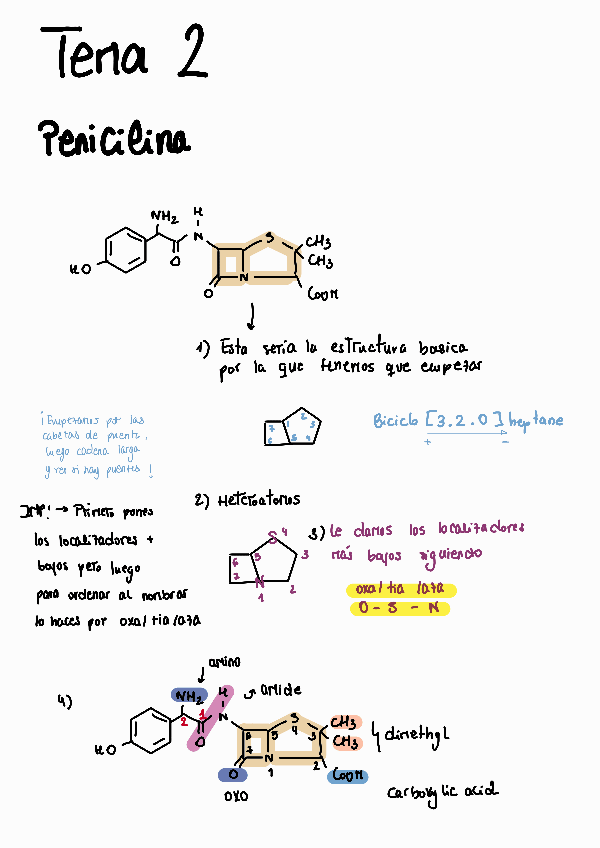 Tema 2
Penicilina
NH2 H
N S CH3
CH3
HO O N
O COOH
1) Esta sería la estructura basica
por la que tenemos que empezar
¡Empezamos por las
cabezas de puente,
luego cadena larga
y ver si hay puentes!
7 1 2 3
6 5 4
Biciclo [3.2.0] heptane
+ -
2) Heteroatomos
IMP! → Primero pones
los localizadores +
bajos pero luego
para ordenar al nombrar
lo haces por oxa/tia/aza
S 4
6 5 3
7 N
1 2
3) Le damos los localizadores
más bajos siguiendo
oxa/tia/aza
O - S - N
amino
4)
NH2 H amide
2 1 N S CH3
6 5 4 3 CH3
dimethyl
HO O 7 N
O 1 2 COOH
oxo
carboxylic acid